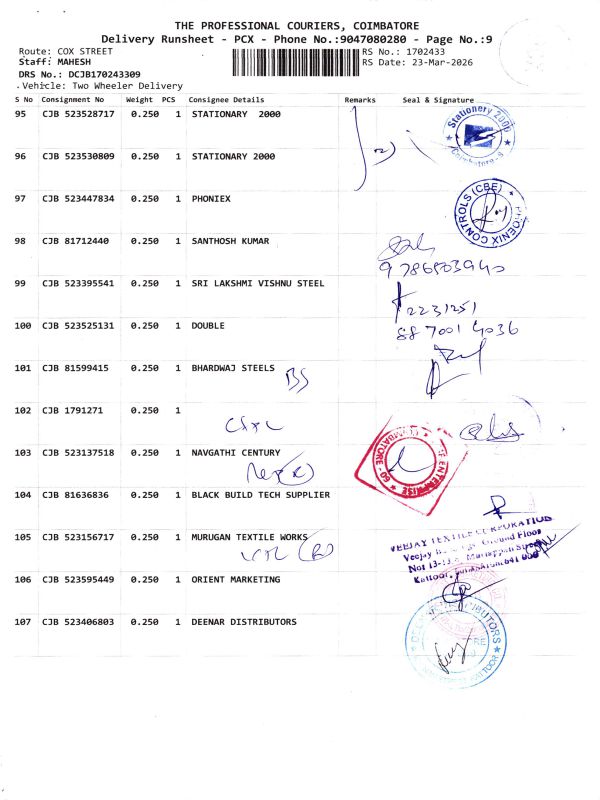 THE PROFESSIONAL COURIERS, COIMBATORE
Delivery Runsheet - PCX - Phone No.:9047080280 - Page No.:9
Route: COX STREET
RS No.: 1702433
Staff: MAHESH
RS Date: 23-Mar-2026
DRS No.: DCJB170243309
Vehicle: Two Wheeler Delivery
S No Consignment No Weight PCS Consignee Details Remarks Seal & Signature
95 CJB 523528717 0.250 1 STATIONARY 2000
Stationery 2000
Coimbatore-9
96 CJB 523530809 0.250 1 STATIONARY 2000
97 CJB 523447834 0.250 1 PHONIEX
PHOENIX CONTROLS (CBE)
98 CJB 81712440 0.250 1 SANTHOSH KUMAR
9786503940
99 CJB 523395541 0.250 1 SRI LAKSHMI VISHNU STEEL
2231251
100 CJB 523525131 0.250 1 DOUBLE
88 7001 4036
101 CJB 81599415 0.250 1 BHARDWAJ STEELS
BS
102 CJB 1791271 0.250 1
103 CJB 523137518 0.250 1 NAVGATHI CENTURY
ENTERPRISE
COIMBATORE
104 CJB 81636836 0.250 1 BLACK BUILD TECH SUPPLIER
105 CJB 523156717 0.250 1 MURUGAN TEXTILE WORKS
VEEJAY TEXTILE CORPORATION
Veejay Ground Floor
Kattoor,
106 CJB 523595449 0.250 1 ORIENT MARKETING
107 CJB 523406803 0.250 1 DEENAR DISTRIBUTORS
DISTRIBUTORS
KATTOOR